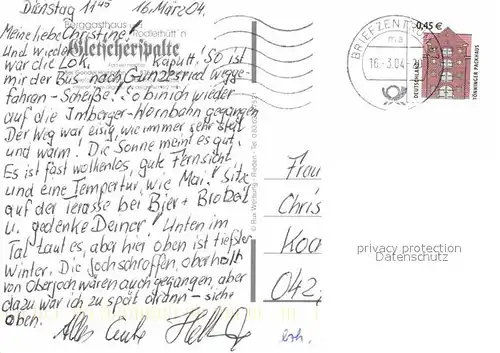 Dienstag 11 45 16. März 04.
Berggasthaus
Rodlerhütt'n
Gletscherspalte
Meine liebe Christine!
Und wieder
war die Lok kaputt! So ist
mir der Bus nach Gunzesried wegge-
fahren - Scheiße! So bin ich wieder
auf die Imberger-Hornbahn gegangen
Der Weg war eisig, wie immer sehr steil
und warm! Die Sonne meint es gut.
Es ist fast wolkenlos, gute Fernsicht
und eine Tempertur, wie Mai! Sitze
auf der Terasse bei Bier + Brotzeit
u. gedenke Deiner! Unten im
Tal taut es, aber hier oben ist tiefster
Winter. Die Jochschroffen, oberhalb
von Oberjoch wären auch gegangen, aber
dazu war ich zu spät dran - siehe
oben. Alles Gute
© Bux Werbung
BRIEFZENTRUM
ma
16.-3.04
0,45 €
DEUTSCHLAND
TÖNNINGER PACKHAUS
Frau
Chris
042
privacy protection
Datenschutz